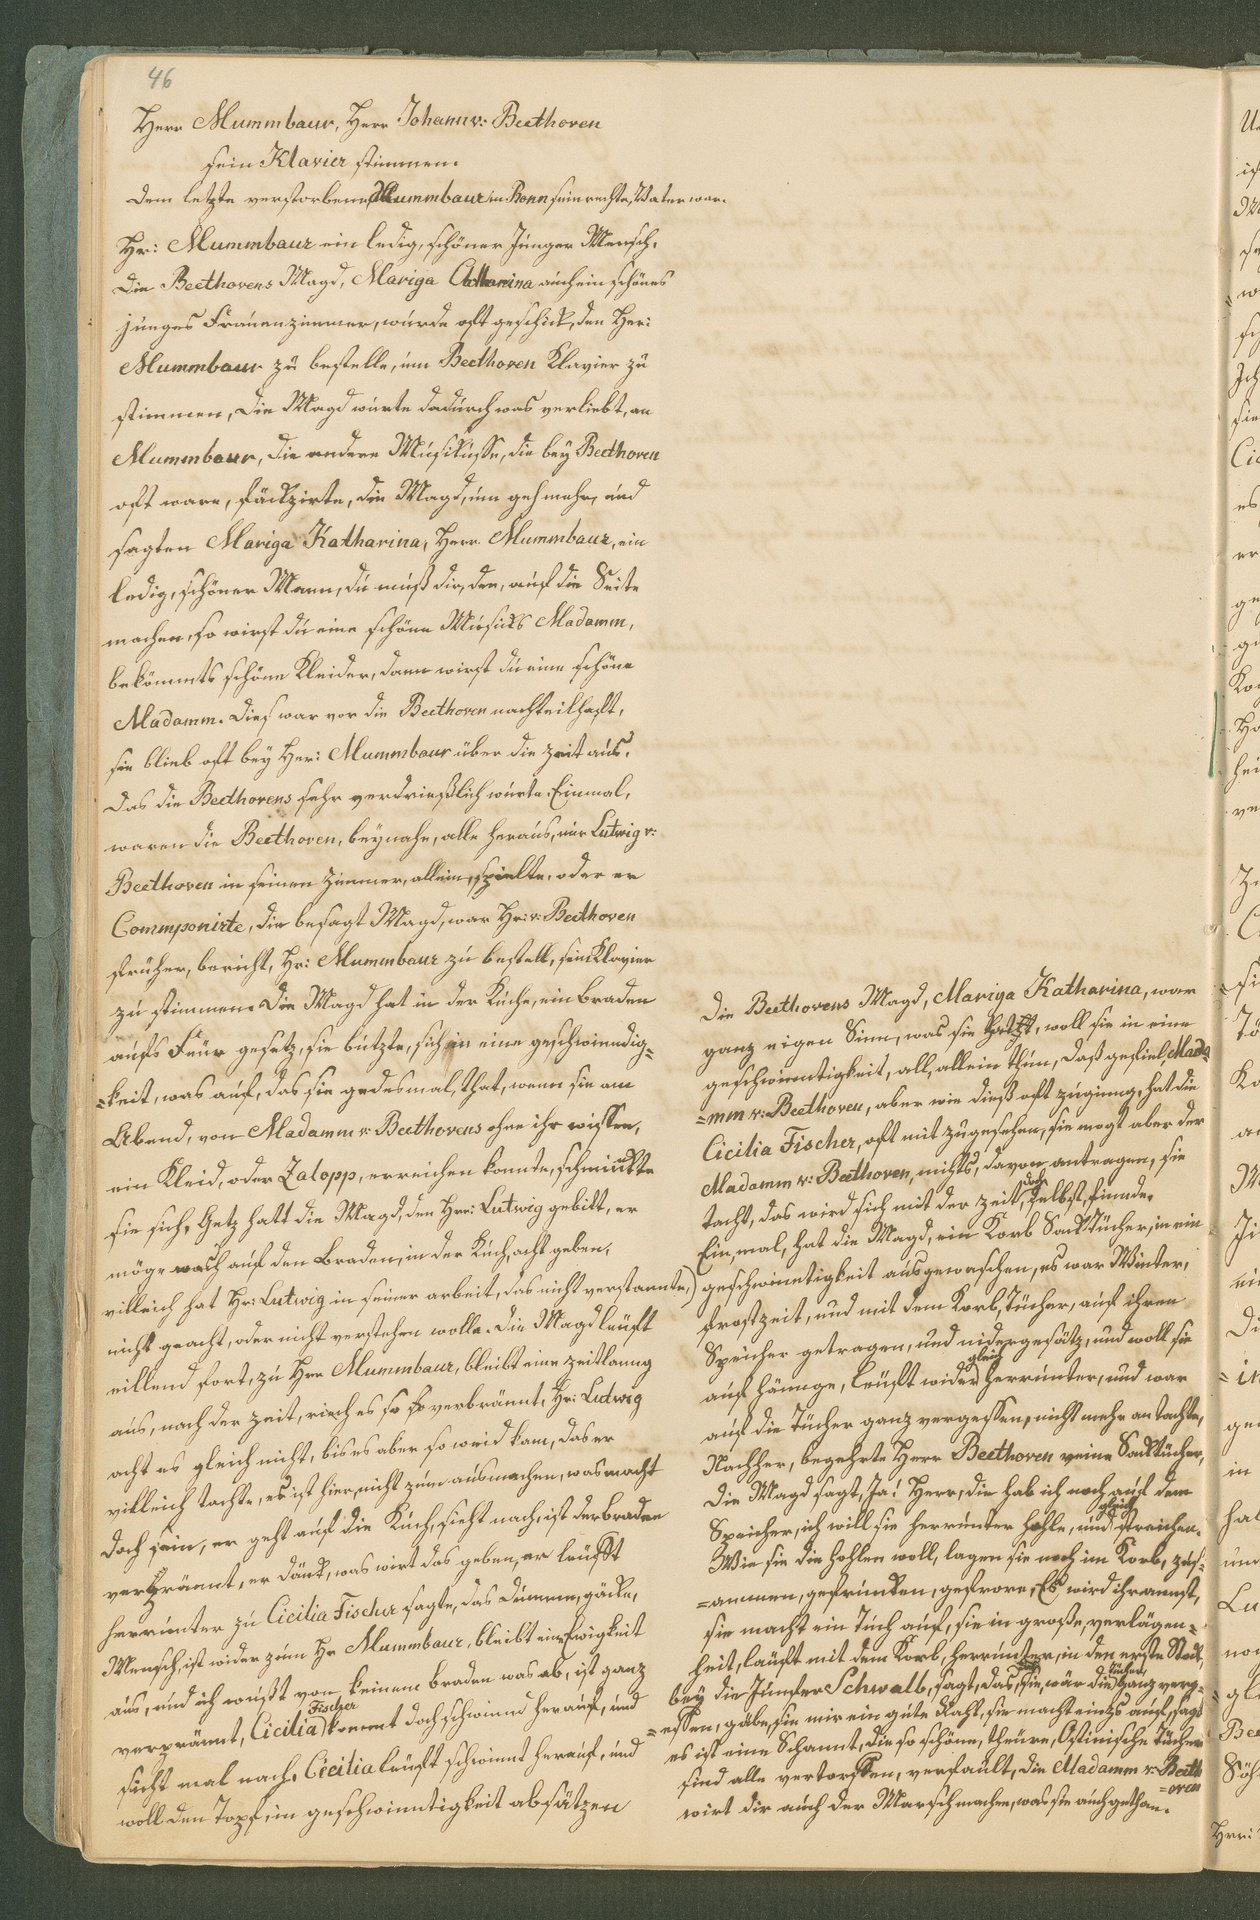 46
Herr Mummbaur, Herr Johann v: Beethoven
sein Klavier stimmen.
dem letzte verstorbene Mummbaur in Bonn sein rechte Vater war.
Hr: Mummbaur ein ledig, schöner Junger Mensch.
die Beethovens Magd, Mariga Catharina auch ein schönes
junges Frauenzimmer, wurde oft geschick, den Her:
Mummbaur zu bestelle, um Beethoven Klavier zu
stimmen, die Magd wurte dadurch was verliebt, an
Mummbaur, die andere Musikusse, die bey Beethoven
oft ware, fäckzirte, die Magd, um geh mehr, und
sagten Mariga Katharina, Herr Mummbaur, ein
ledig, schöner Mann, du muß dir, den, auf die Seite
machen, so wirst du eine schöne Musicks Madamm,
bekömmts schöne Kleider, dann wirst du eine schöne
Madamm. Dies war vor die Beethoven nachteilhaft,
sie blieb oft bey Her: Mummbaur über die zeit aus.
das die Beethovens sehr verdrießlich wurte. Einmal,
waren die Beethoven, beynahe, alle heraus, nur Lutwig v:
Beethoven in seinen Zimmer, allein, spielte, oder er
Commponirte, die besagt Magd, war Hr: v: Beethoven
früher, bericht, Hr: Mummbaur zu bestell, sein Klavier
zu stimmen. Die Magd hat in der Küche, ein braden
aufs Feür gesetz, sie butzte, sich in eine geschwiendig=
=keit, was auf, das sie gedesmal, that, wenn sie am
Abend, von Madamm v: Beethovens ohne ihr wissen,
ein Kleid, oder Zalopp, erreichen konnte, schminckte
sie sich, Getz hatt die Magd, den Hrr: Lutwig gebitt, er
möge auch auf den Braden, in der Küch, acht geben,
villeich hat Hr: Lutwig in seiner arbeit, das nicht verstannte,
nicht geacht, oder nicht verstehen wolle. Die Magd leüft
eillend fort, zu Hrr Mummbaur, bleibt eine zeitlanng
aus, nach der zeit, riech es so verbrännt, Hr: Ludwig
acht es gleich nicht, bis es aber so weid kam, das er
villeich tachte, es ist hier, nicht zum ausmachen, was macht
doch sein, er geht auf die Küch, sieht nach, ist der braden
verbrännt, er dänck, was wirt das geben, er leüfft
herrunter zu Cicilia Fischer sagte, das dumme, gäcke,
Mensch, ist wider zum Hr Mummbaur, bleibt eine Ewigkeit
aus, und ich wußt von keinem braden was ab, ist ganz
verprännt, Cicilia Fischer kommt doch schwinnd herauf, und
sicht mal nach, Cicilia leüft schwinnt herauf, und
woll den Topf, in geschwinntigkeit absätzen
Die Beethovens Magd, Mariga Katharina, war
ganz eigen Sinn, was sie hatt, woll sie in eine
geschwinntigkeit, all, allein thun, daß gefiel Mada=
=mm v: Beethoven, aber wie dieß oft zuginng, hat die
Cicilia Fischer, oft mit zugesehen, sie mogt aber der
Madamm v: Beethoven, nichts, davon antragen, sie
tacht, das wird sich mit der zeit, doch selbst, finnde.
Ein, mal, hat die Magd, ein Korb Sacktücher, in ein
geschwinntigkeit ausgewaschen, es war Winter,
frostzeit, und mit dem Korb, Tücher, auf ihren
Speicher getragen, und nidergesätz, und woll sie
auf hännge, leüft wider gleich herrunter, und war
auf die Tücher ganz vergessen, nicht mehr an tachte,
Nachher, begehrte Herr Beethoven reine Sacktücher,
Die Magd sagt, Ja! Herr, die hab ich noch auf dem
Speicher, ich will sie herrunter hohle, und gleich streichen.
Wie sie die hohlen woll, lagen sie noch im Korb, zus=
=ammen, gefruncken, gefrore, Es wird ihr annst,
sie macht ein Tuch auf, sie in große, verlägen=
heit, läuft mit dem Korb, herrunter, in den erste Stock,
bey die Jumfer Schwalb, sagt, das sie, wär die Tücher ganz verg=
=essen, gäbe, sie mir ein gute Raht, sie macht einzs auf, sagt
es ist eine Schannt, die so schöne, theüre, Ostinische Tücher
sind alle vertorffen, verfault, die Madamm v: Beeth
=oven
wirt dir auch der Marsch machen, was sie auch gethan.